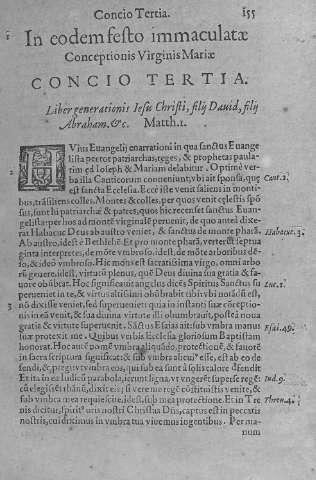 Concio Tertia. 155
In eodem festo immaculatæ
Conceptionis Virginis Mariæ
CONCIO TERTIA.
Liber generationis Iesu Christi, filij Dauid, filij
Abraham. &c. Matth. 1.
Vius Euangelij enarrationi in qua sanctus Euange
lista per tot patriarchas, reges, & prophetas paula-
tim ad Ioseph & Mariam delabitur. Optimè ver
ba illa Canticorum conueniunt, vbi ait sponsa, que
est sancta Ecclesia. Ecce iste venit saliens in monti-
Cant. 2.
bus, trāsiliens colles. Montes & colles, per quos venit cęlestis spō
sus, sunt hi patriarchæ & patres, quos hic recenset sanctus Euan
gelista: per quos ad virginē vsque peruenit, de quo antè dixe-
rat Habacuc Deus ab austro veniet, & sanctus de monte pharā.
Habacuc. 3.
Ab austro, idest è Bethlehē. Et pro monte pharā, vertere septua
ginta interpretes, de mōte vmbroso, idest, de mōte arboribus dē-
so, & ideò vmbroso. Hic mōs est sacratissima virgo, omni arbo
rū genere, idest, virtutū plenus, quē Deus diuina sua gratia & fa-
uore obūbrat. Hoc significauit angelus dicēs Spiritus Sanctus su
perueniet in te, & virtus altissimi obūbrabit tibi
Luc. 1.
nō dixisse veniet, sed superueniet: quia in instanti suæ cōcep-
3
nis in eā venit, & sua diuina virtute illi obumbrauit, postea noua
gratia & virtute superuenit. Sāctus Esaias ait: sub vmbra manus
Esai. 49.
suæ protexit me. Quibus verbis Ecclesia gloriosum Baptistam
honorat. Hoc autē nomē vmbra aliquādo, protectionē, & fauorē
in sacra scriptura significat: & sub vmbra alicui' esse, est ab eo de
fendi,
Et ita in ea Iudicū parabola, ierunt ligna, vt vngerēt super se regē:
Iud. 9.
cū elegissēt rhānū, dixit eis; si vere me regē cōstituistis venite, &
sub vmbra mea requiescite, idest, sub mea protectione. Et in Tre
nis dicitur, spirit' oris nostri Christus Dñs, captus est in peccatis
Thren. 4.
nostris, cui diximus in vmbra tua viuemus in gentibus. Per ma-
num